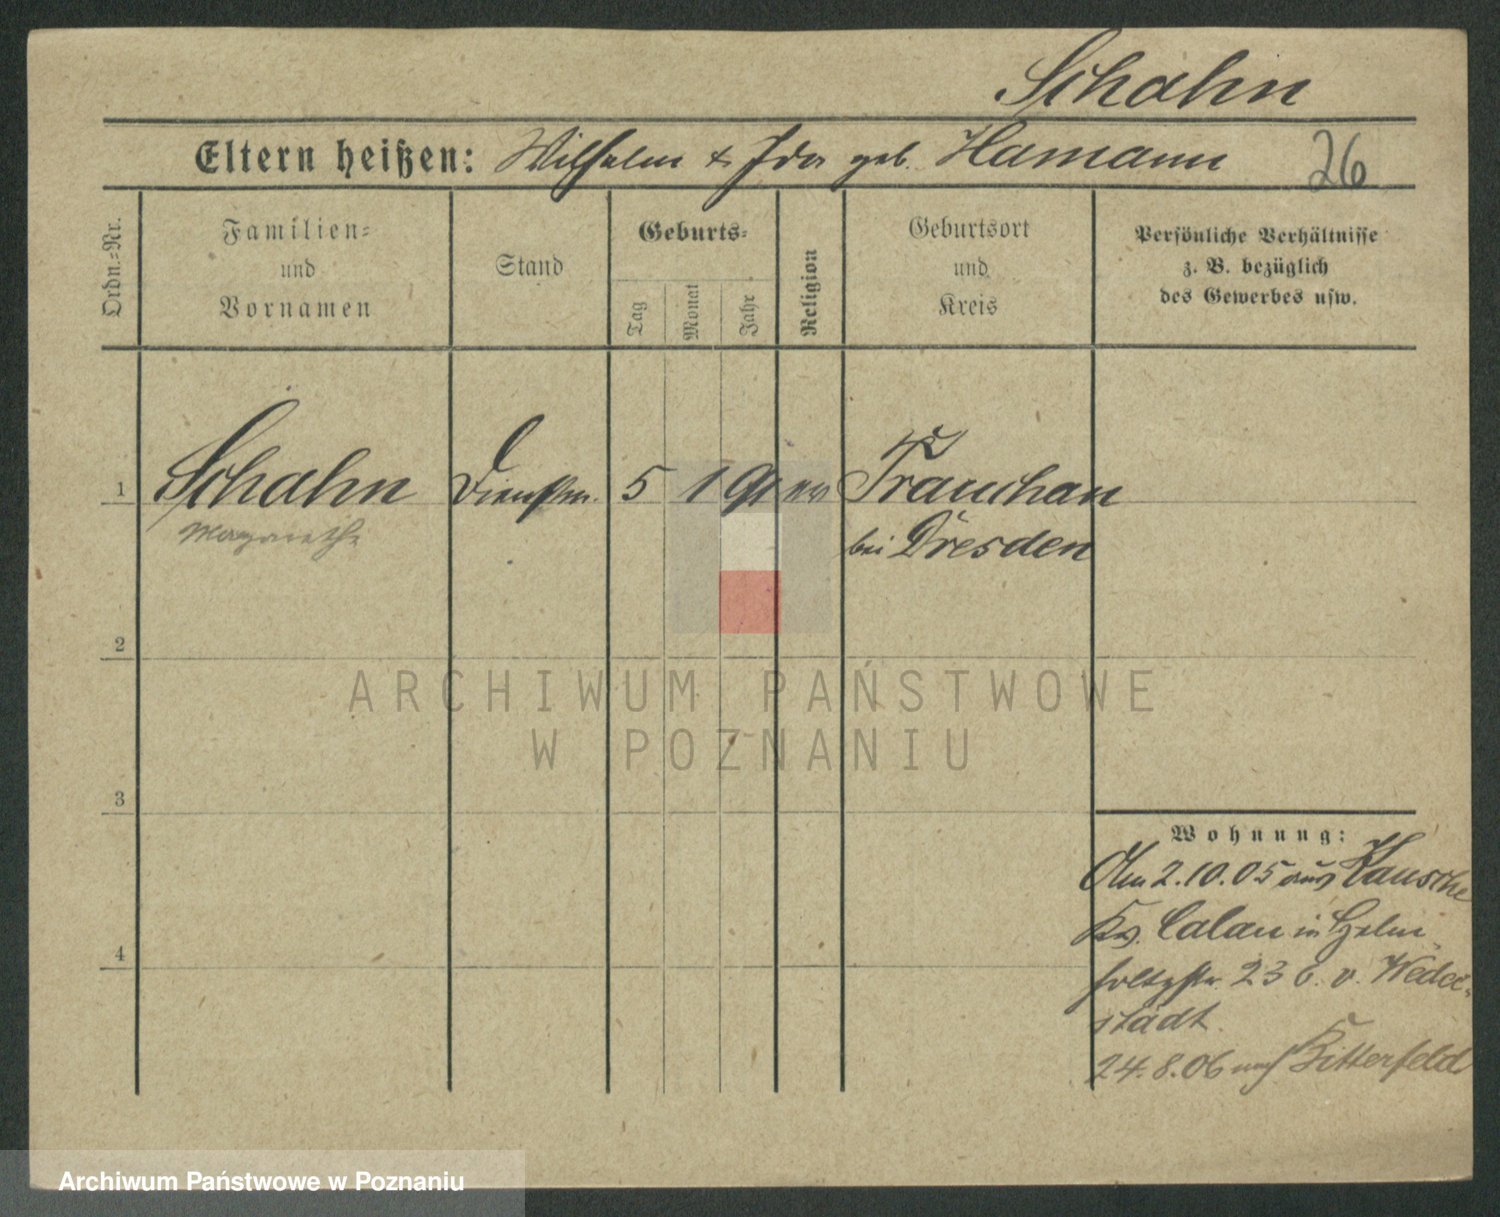 Schahn
Eltern heißen: Wilhelm & Ida geb. Hamann 26
Ordn.-Nr.
Familien-
und
Vornamen
Stand
Geburts-
Tag
Monat
Jahr
Religion
Geburtsort
und
Kreis
Persönliche Verhältnisse
z. B. bezüglich
des Gewerbes usw.
1 Schahn Dienstm. 5 1 91 ev Trauchan
Margarethe
bei Dresden
2
3
4
Wohnung:
Am 2.10.05 aus Kausche
Kr. Calau in Helm-
holtzstr. 23 b. v. Weder-
städt.
24.8.06 nach Bitterfeld
ARCHIWUM PAŃSTWOWE
W POZNANIU
Archiwum Państwowe w Poznaniu